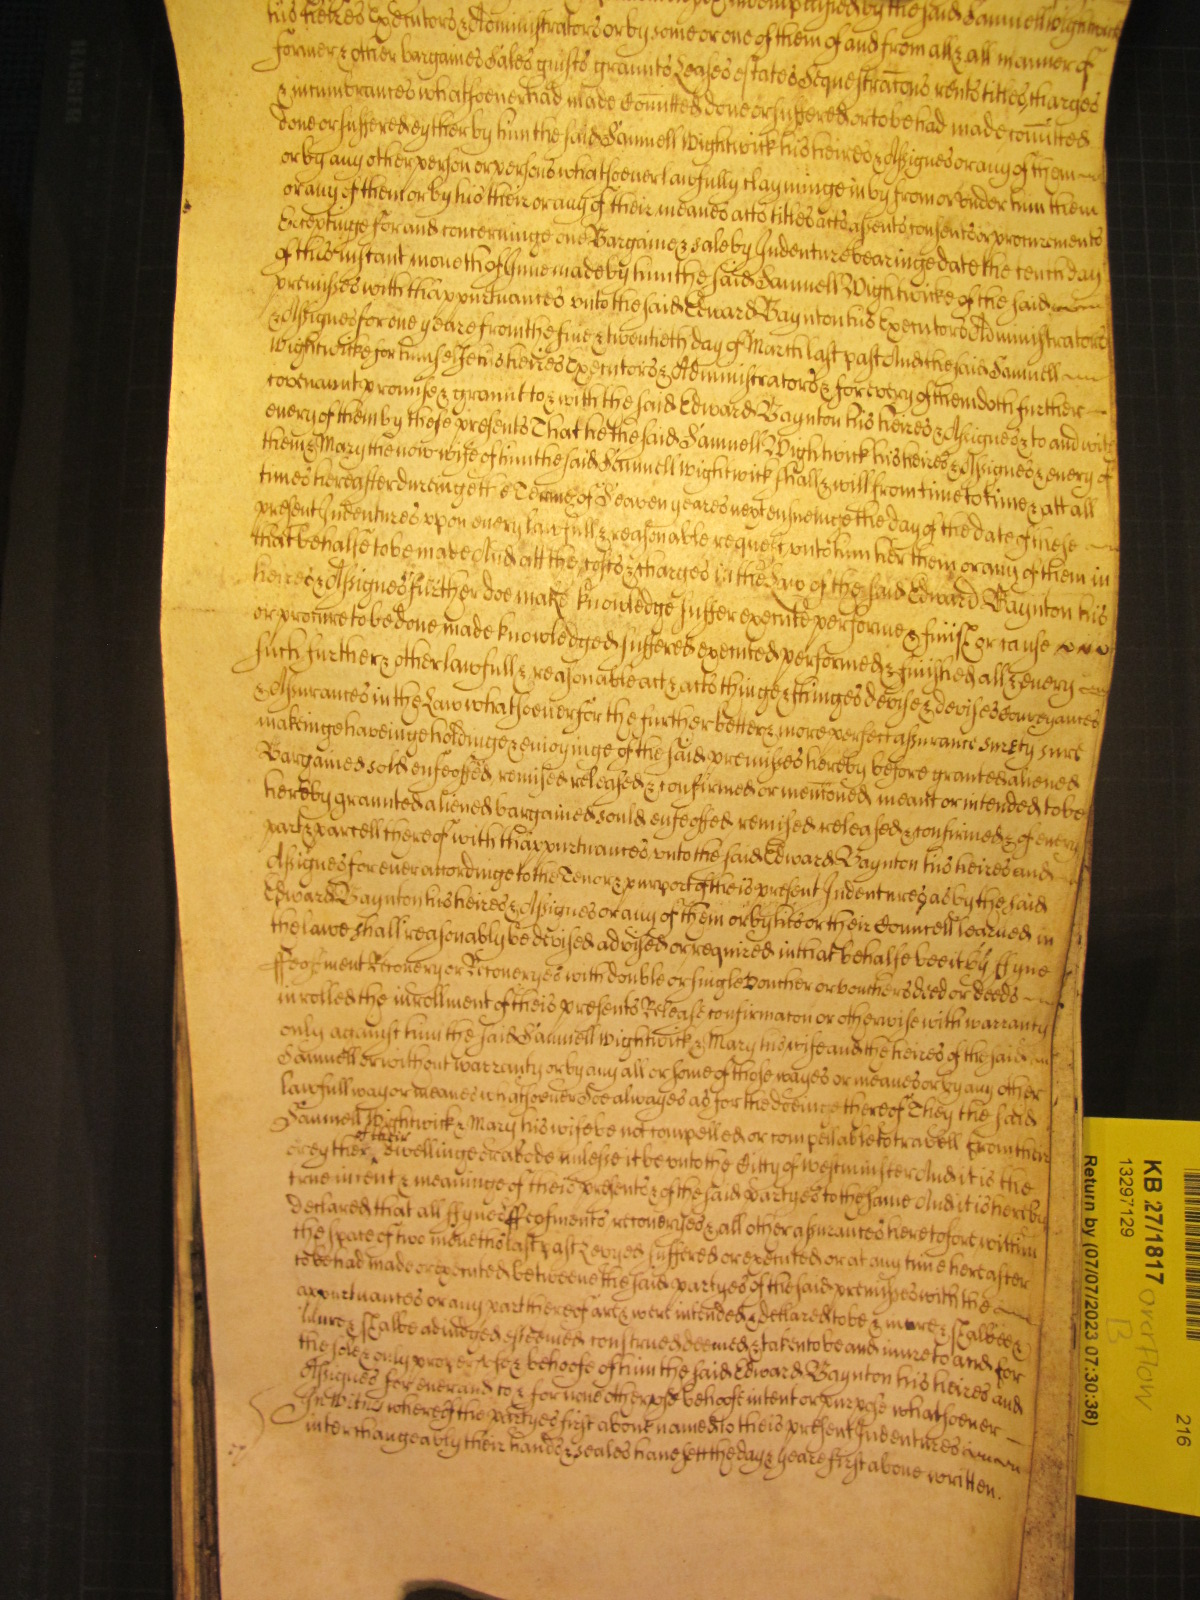 by the said Samuell Wightwick
his heires Executors & Administrators or by some or one of them of and from all & all manner of
former & other bargaines Sales guifts graunts Leases estates Sequestracons rents titles charges
& incumbrances whatsoever had made Comitted done or suffered or to be had made comitted
done or suffered eyther by him the said Samuell Wightwick his heires & Assignes or any of them
or by any other person or persons whatsoever lawfully clayminge in by from or under him them
or any of them or by his their or any of their meanes acts titles assents consents or procurements
Exceptinge for and concerninge one Bargaine & sale by Indenture bearinge date the tenth day
of this instant moneth of June made by him the said Samuell Wightwicke of the said
premisses with thappurtenances unto the said Edward Baynton his Executors Administrators
& Assignes for one yeare from the five & twentieth day of March last past And the said Samuell
Wightwicke for himselfe his heires Executors & Administrators & for every of them doth further
covenaunt promise & graunt to & with the said Edward Baynton his heires & Assignes & to and with
every of them by these presents That he the said Samuell Wightwick his heires & Assignes & every of
them & Mary the now wife of him the said Samuell Wightwick shall & will from time to time & att all
times hereafter duringe the Terme of Seaven yeares next ensueinge the day of the date of these
present Indentures upon every lawfull & reasonable request unto him her them or any of them in
that behalfe to be made And att the costs & charges in the Law of the said Edward Baynton his
heires & Assignes further doe make knowledge suffer execute performe & finish or cause
or procure to be done made knowledged suffered executed performed & finished all & every
such further & other lawfull & reasonable act & acts thinge & thinges devise & devises conveyances
& Assurances in the Law whatsoever for the further better & more perfect assurance surety sure
makeinge haveinge holdinge & enioyinge of the said premisses hereby before granted aliened
Bargained sold enfeoffed remised released & confirmed or mencioned meant or intended to be
hereby graunted aliened bargained sould enfeoffed remised released & confirmed & of every
part & parcell thereof with thappurtenances unto the said Edward Baynton his heires and
Assignes for ever accordinge to the Tenor & purport of theis present Indentures as by the said
Edward Baynton his heires & Assignes or any of them or by his or their Councell learned in
the lawe shall reasonably be devised advised or required in that behalfe bee it by ffyne
ffeoffment Recovery or Recoveryes with double or single voucher or vouchers deed or deeds
inrolled the inrollment of theis presents Release confirmacon or otherwise with warranty
only against him the said Samuell Wightwick & Mary his wife and the heires of the said
Samuell or without warranty or by any all or some of those wayes or meanes or by any other
lawfull way or meanes whatsoever Soe alwayes as for the doeinge thereof They the said
Samuell Wightwick & Mary his wife be not compelled or compellable to travell from their
or eyther of their dwellinge or abode unlesse it be unto the Citty of Westminster And it is the
true intent & meaninge of theis presents & of the said partyes to the same And it is hereby
declared that all ffynes ffeofments recoveries & all other assurances heretofore within
the space of two moneths last past levyed suffered or executed or at any time hereafter
to be had made or executed betweene the said partyes of the said premisses with the
appurtenances or any part thereof are & were intended & declared to be & inure & shalbee &
inure & shalbe adiudged esteemed construed deemed & taken to be and inure to and for
the sole & only proper use & behoofe of him the said Edward Baynton his heires and
Assignes for ever and to & for none other use behoofe intent or purpose whatsoever
In Witnes whereof the partyes first above named to theis present Indentures
interchangeably their hands & seales have sett the day & yeare first above written.
KB 27/1817 overflow
B
13297129
Return by (07/07/2023 07:30:38)
216